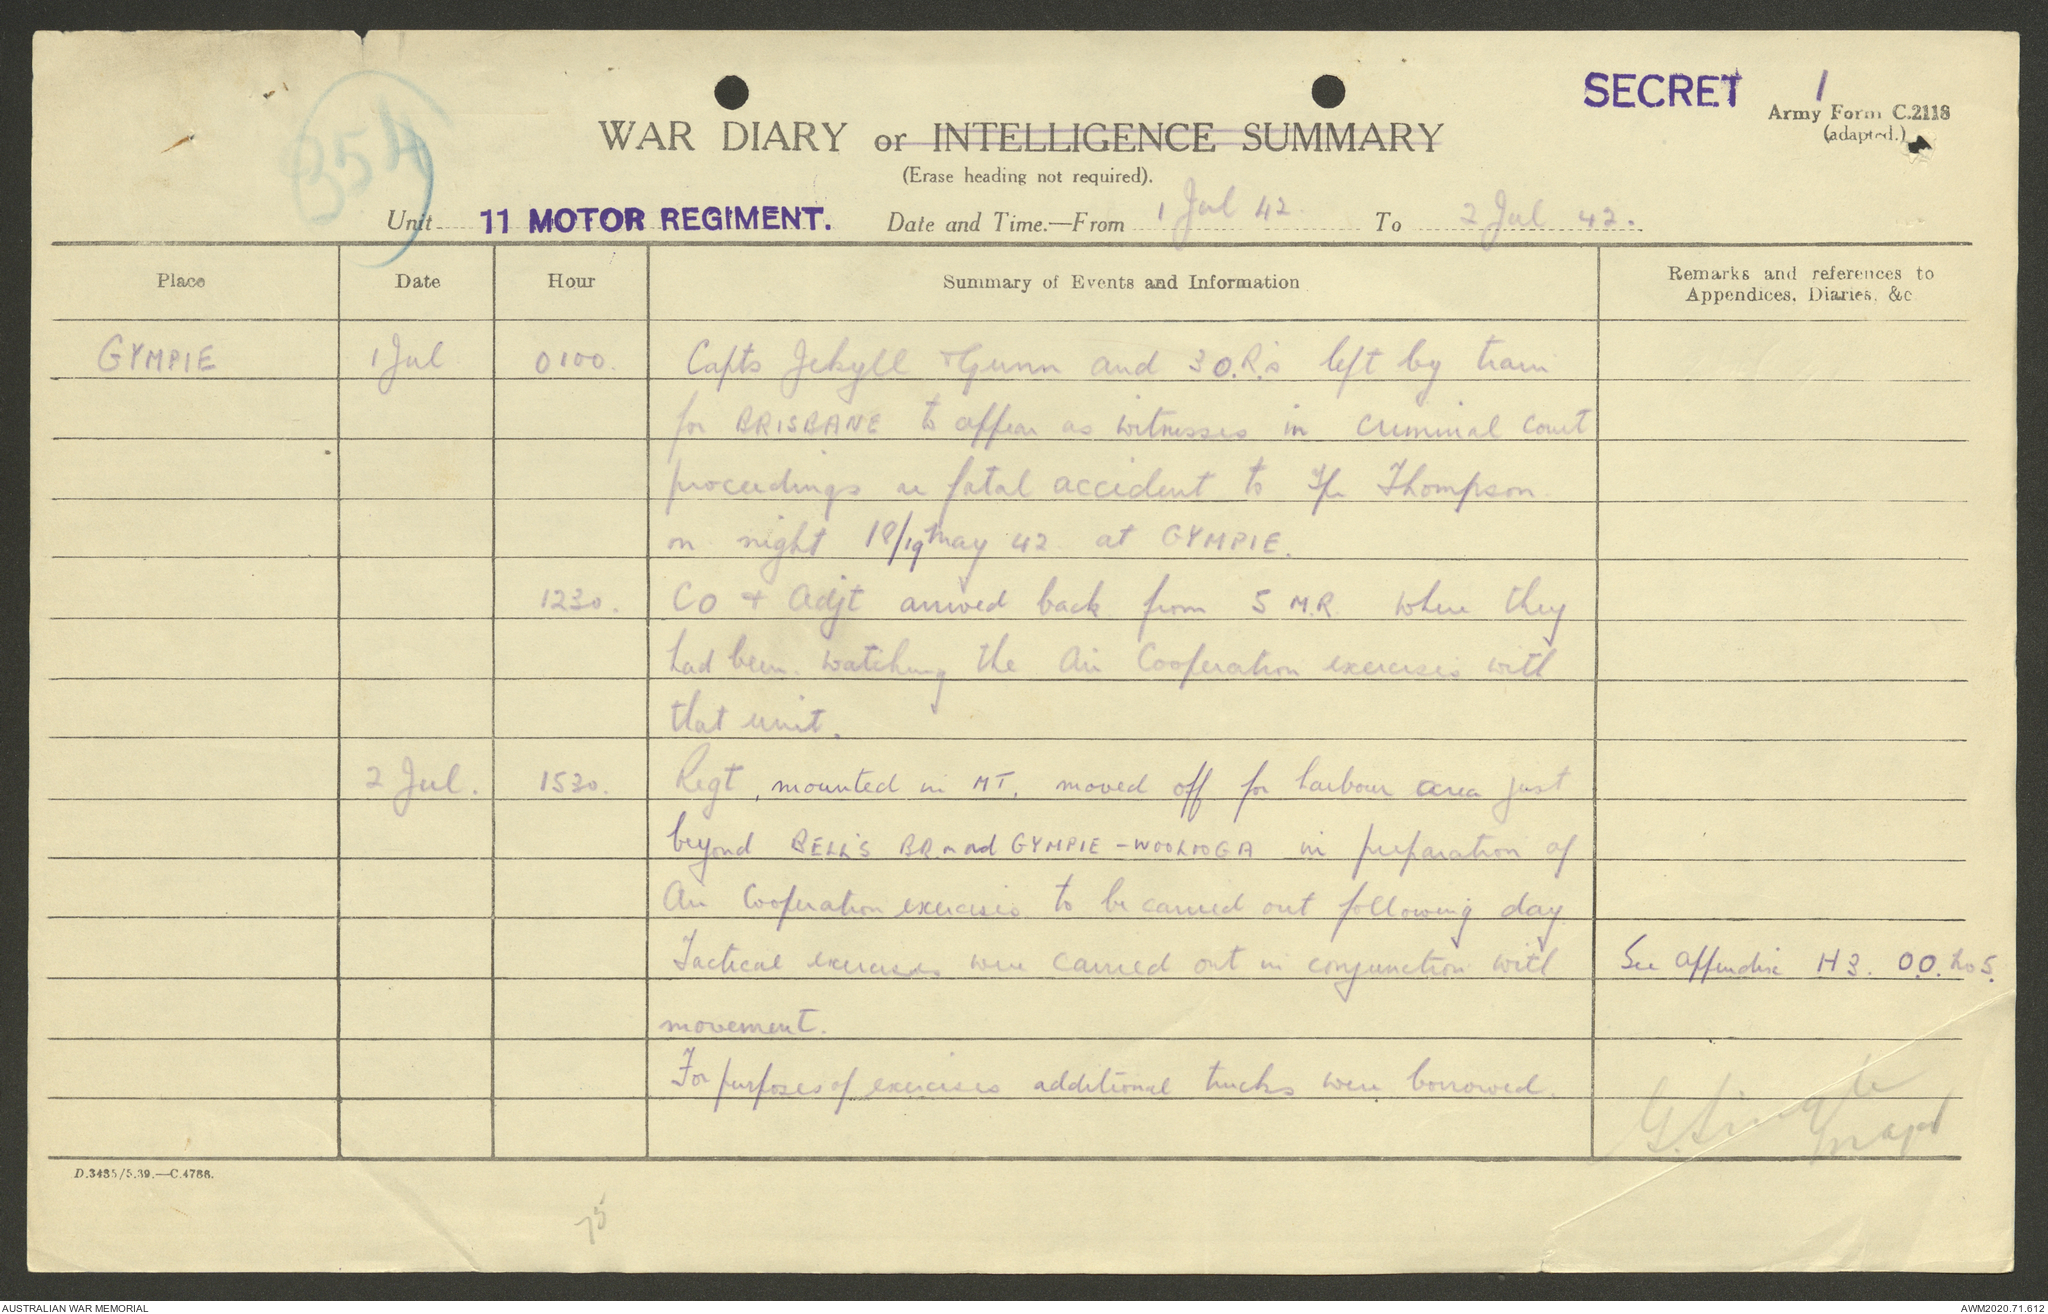 354
SECRET 1
Army Form C.2118
(adapted.)
WAR DIARY or INTELLIGENCE SUMMARY
(Erase heading not required).
Unit 11 MOTOR REGIMENT. Date and Time.—From 1 Jul 42. To 2 Jul 42.
Place Date Hour Summary of Events and Information Remarks and references to
Appendices, Diaries, &c
GYMPIE 1 Jul 0100. Capts Jekyll + Gunn and 3 O.R.s left by train
for BRISBANE to appear as witnesses in criminal court
proceedings re fatal accident to Tpr Thompson
on night 18/19 May 42 at GYMPIE.
1230. CO + Adjt arrived back from 5 M.R. where they
had been watching the Air Cooperation exercises with
that unit.
2 Jul. 1530. Regt, mounted in MT, moved off for harbour area just
beyond BELL'S BR on rd GYMPIE - WOOLOOGA in preparation of
Air Cooperation exercises to be carried out following day
Tactical exercises were carried out in conjunction with See appendix H3. O.O. No 5.
movement.
For purposes of exercises additional trucks were borrowed.
Major
D.3485/5.39.—C.4788.
75
AUSTRALIAN WAR MEMORIAL AWM2020.71.612